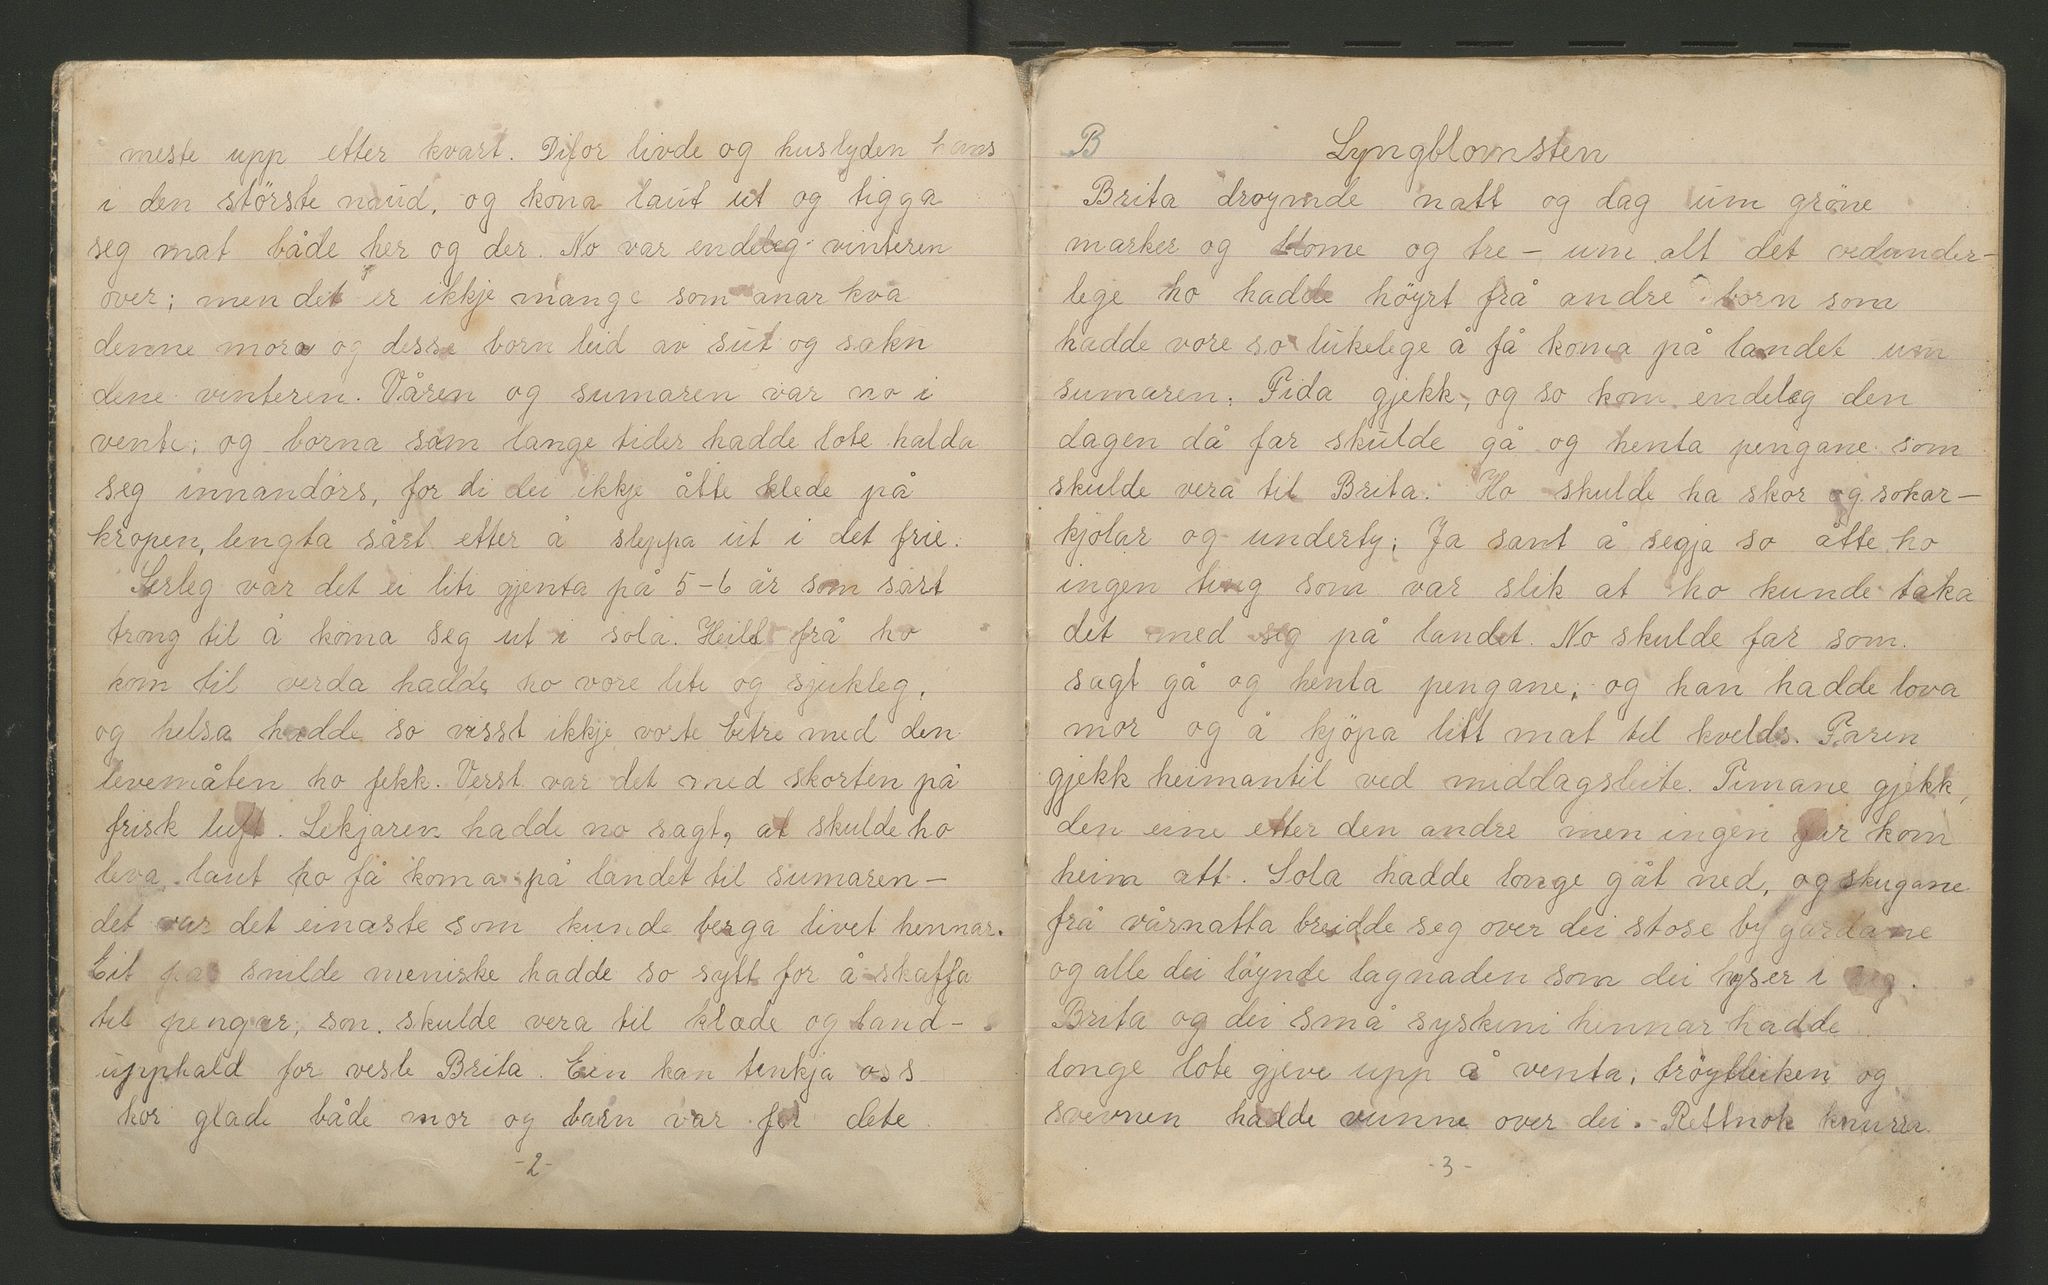 meste upp etter kvart. Difor livde og huslyden hans
i den störste naud, og kona laut ut og tigga
seg mat både her og der. No var endeleg vinteren
over; men det er ikkje mange som anar kva
denne mora og desse born leid av sut og sakn
dene vinteren. Våren og sumaren var no i
vente, og borna som lange tider hadde lote halda
seg innandörs, for di dei ikkje åtte klede på
kropen, lengta sårt etter å sleppa ut i det frie.
Serleg var det ei liti gjenta på 5-6 år som sårt
trong til å koma seg ut i sola. Heilt frå ho
kom til verda hadde ho vore liti og sjukleg,
og helsa hadde so visst ikkje vorte betre med den
levemåten ho fekk. Verst var det med skorten på
frisk luft. Lekjaren hadde no sagt, at skulde ho
leva, laut ho få koma på landet til sumaren –
det var det einaste som kunde berga livet hennar.
Eit par snilde meniske hadde so sytt for å skaffa
til pengar, son skulde vera til klæde og land-
upphald for vesle Brita. Ein kan tenkja oss
kor glade både mor og barn var for dete.
-2-
B Lyngblomsten
Brita droymde natt og dag um gröne
marker og blome og tre – um alt det vedunder-
lege ho hadde höyrt frå andre born som
hadde vore so lukelege å få koma på landet um
sumaren. Tida gjekk, og so kom endeleg den
dagen då far skulde gå og henta pengane som
skulde vera til Brita. Ho skulde ha skor og sokar –
kjolar og underty; Ja sant å segja so åtte ho
ingen ting som var slik at ho kunde taka
det med seg på landet. No skulde far som
sagt gå og henta pengane, og han hadde lova
mor og å kjöpa litt mat til kvelds. Faren
gjekk heimantil ved middagsleite. Timane gjekk,
den eine etter den andre men ingen far kom
heim att. Sola hadde longe gåt ned, og skugane
frå vårnatta breidde seg over dei stose bygardane
og alle dei löynde lagnaden som dei hyser i seg.
Brita og dei små syskeni hennar hadde
longe lote gjeve upp å venta, tröytleiken og
svevnen hadde vunne over dei. Rettnok knurra
-3-